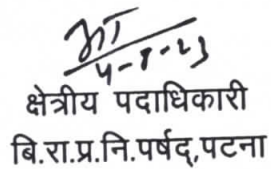 4-8-23
क्षेत्रीय पदाधिकारी
बि.रा.प्र.नि.पर्षद्,पटना